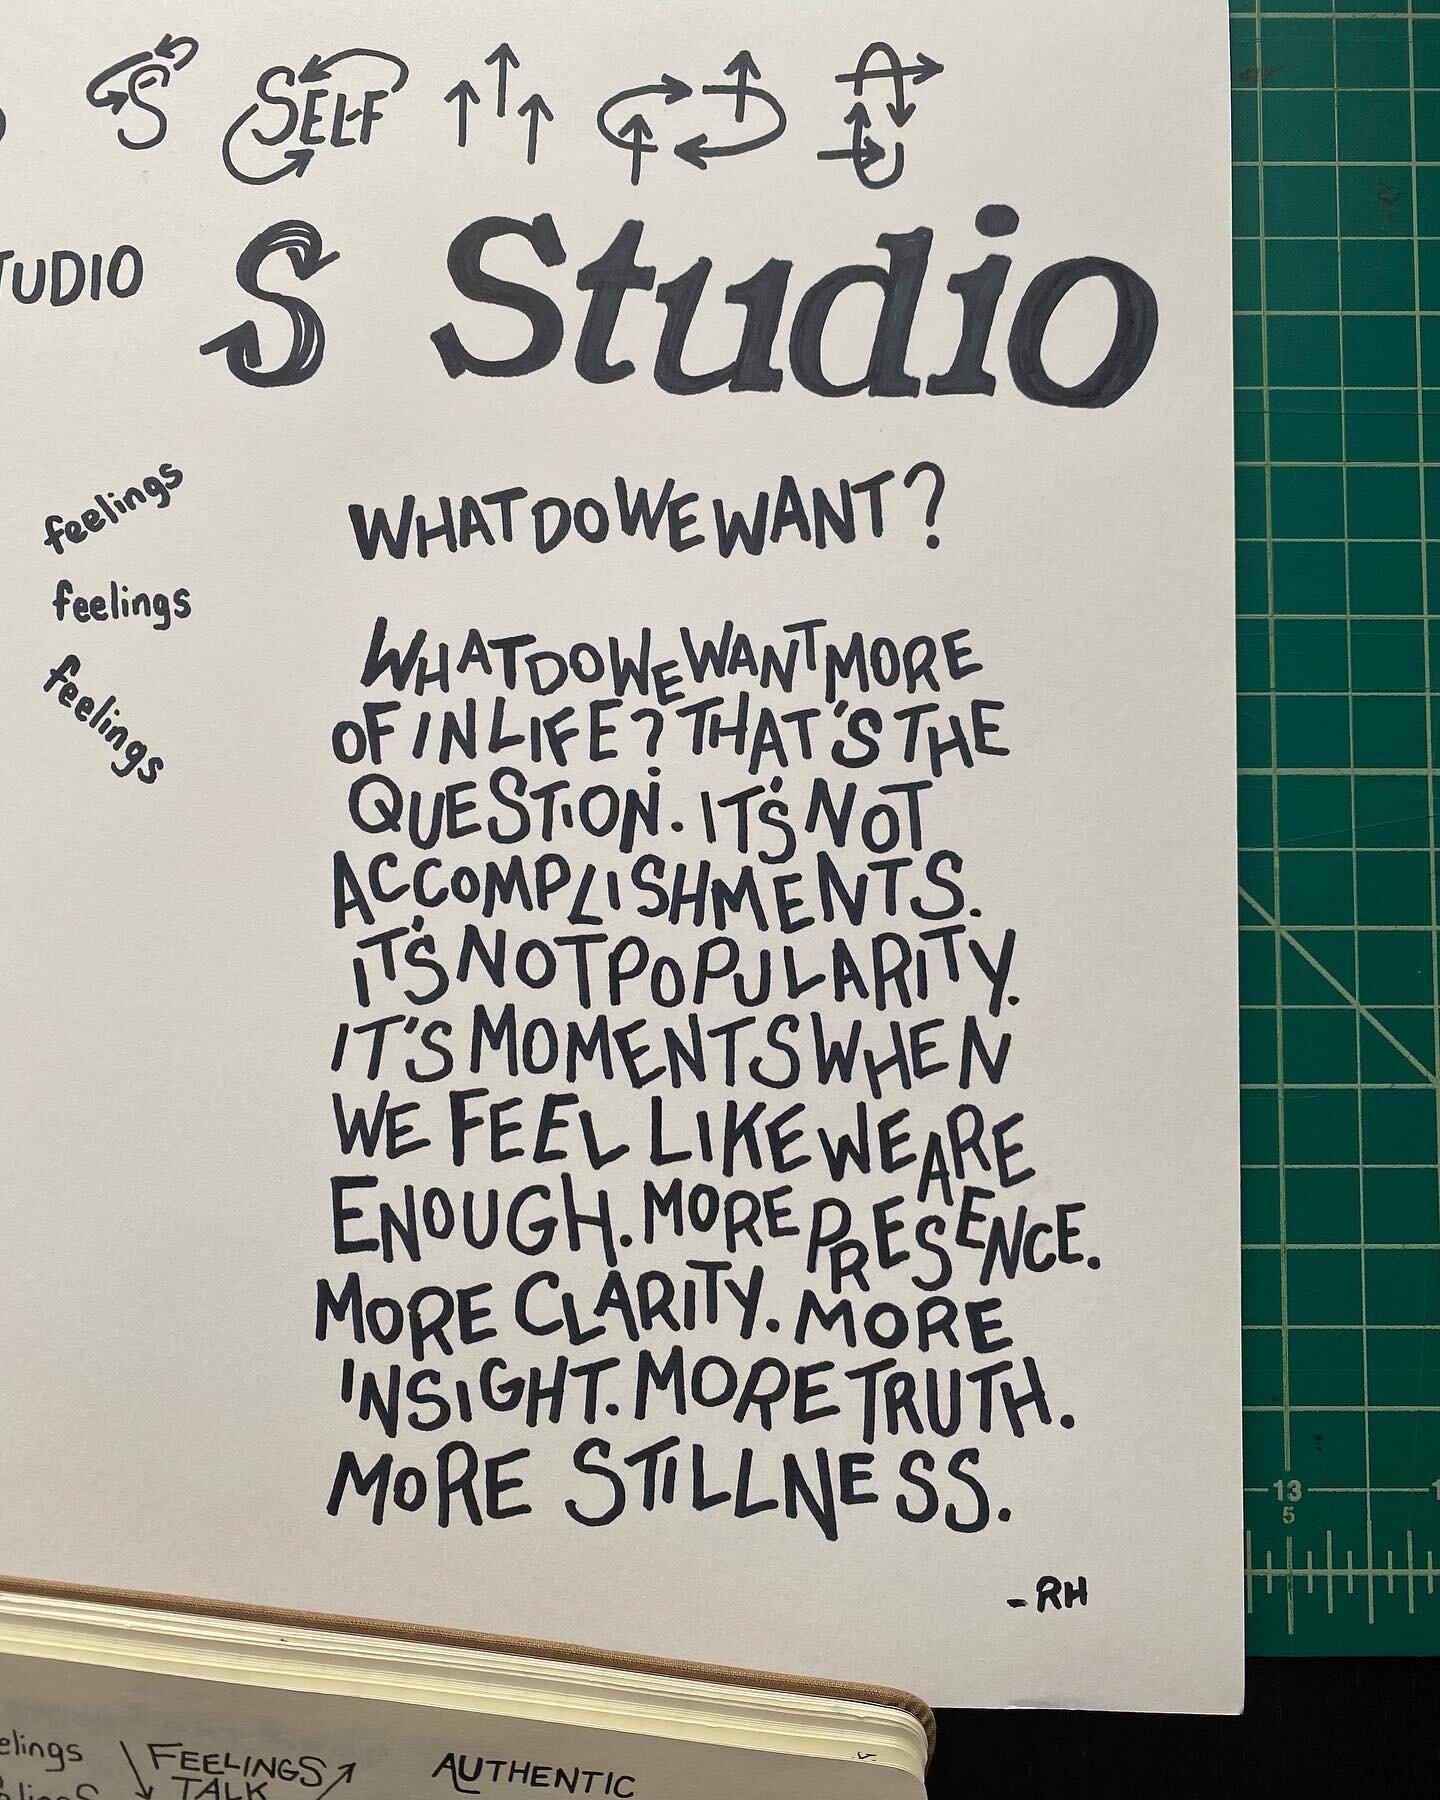 S SELF
TUDIO S Studio
feelings
feelings
feelings
WHAT DO WE WANT?
WHAT DO WE WANT MORE
OF IN LIFE? THAT'S THE
QUESTION. IT'S NOT
ACCOMPLISHMENTS.
IT'S NOT POPULARITY.
IT'S MOMENTS WHEN
WE FEEL LIKE WE ARE
ENOUGH. MORE PRESENCE.
MORE CLARITY. MORE
INSIGHT. MORE TRUTH.
MORE STILLNESS.
-RH
13
5
elings FEELINGS AUTHENTIC
TALK